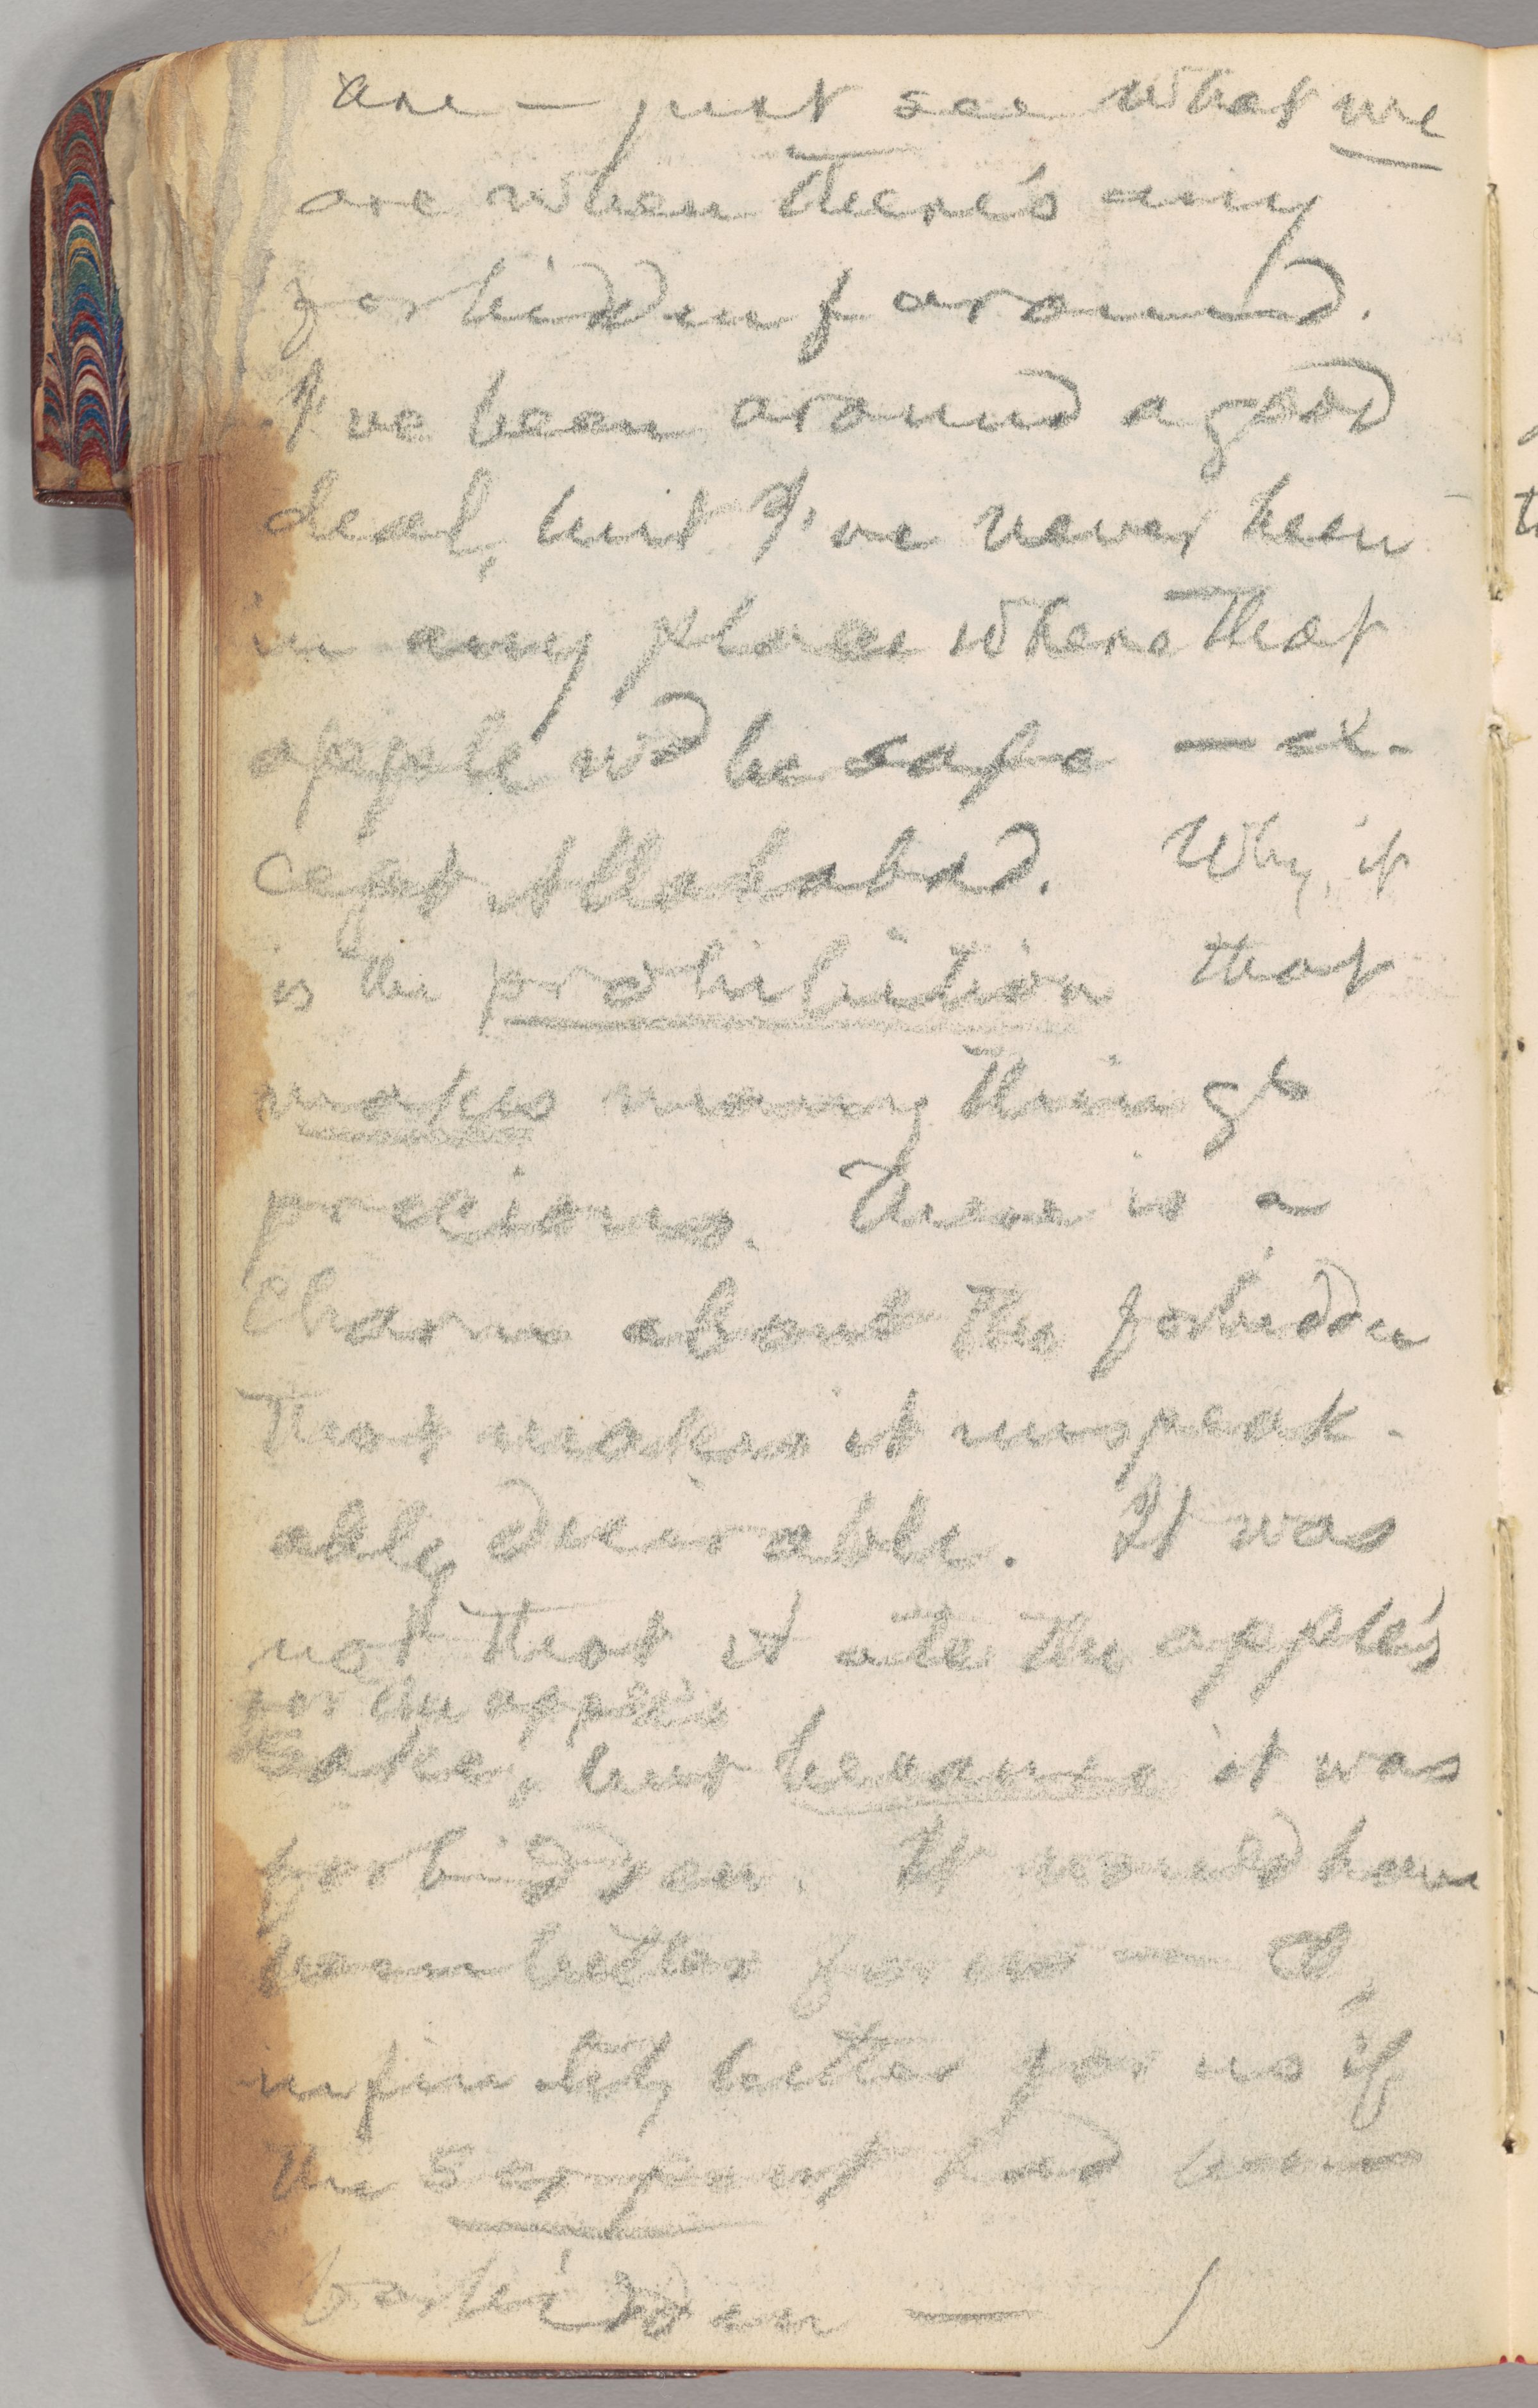 are — just see what we
are when there's any
forbidden f around.
I've been around a good
deal, but I've never been
in any place where that
apple wd be safe — ex-
cept Allahabad. Why, it
is the prohibition that
makes many things
precious. There is a
charm about the forbidden
that makes it unspeak-
ably desirable. It was
not that A ate the apple's
for the apple's
sake, but because it was
forbidden. It would have
been better for us — O,
infinitely better for us if
the serpent had been
forbidden —